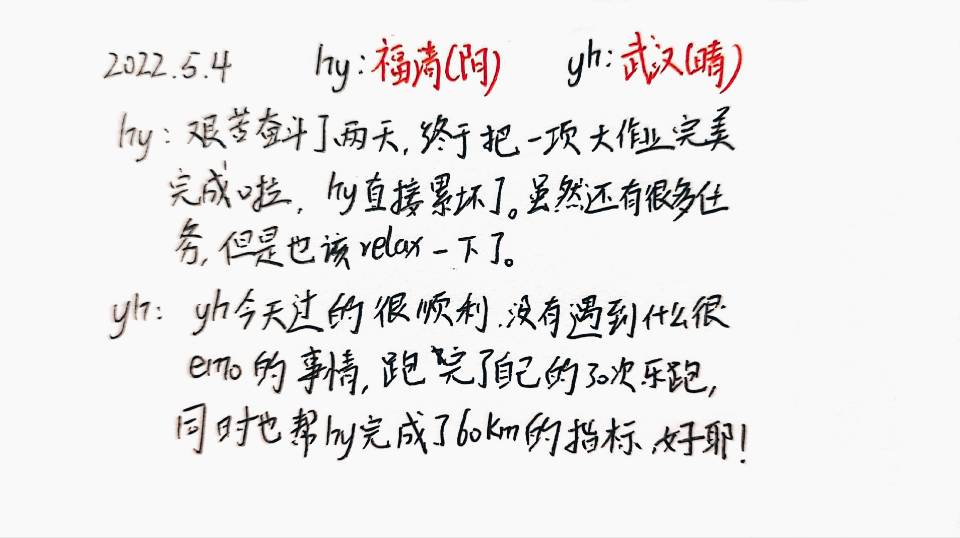 2022.5.4 hy:福清(阴) yh:武汉(晴)
hy:艰苦奋斗了两天,终于把一项大作业完美
完成啦,hy直接累坏了。虽然还有很多任
务,但是也该relax一下了。
yh: yh今天过的很顺利,没有遇到什么很
emo的事情,跑完了自己的30次乐跑,
同时也帮hy完成了60km的指标,好耶!